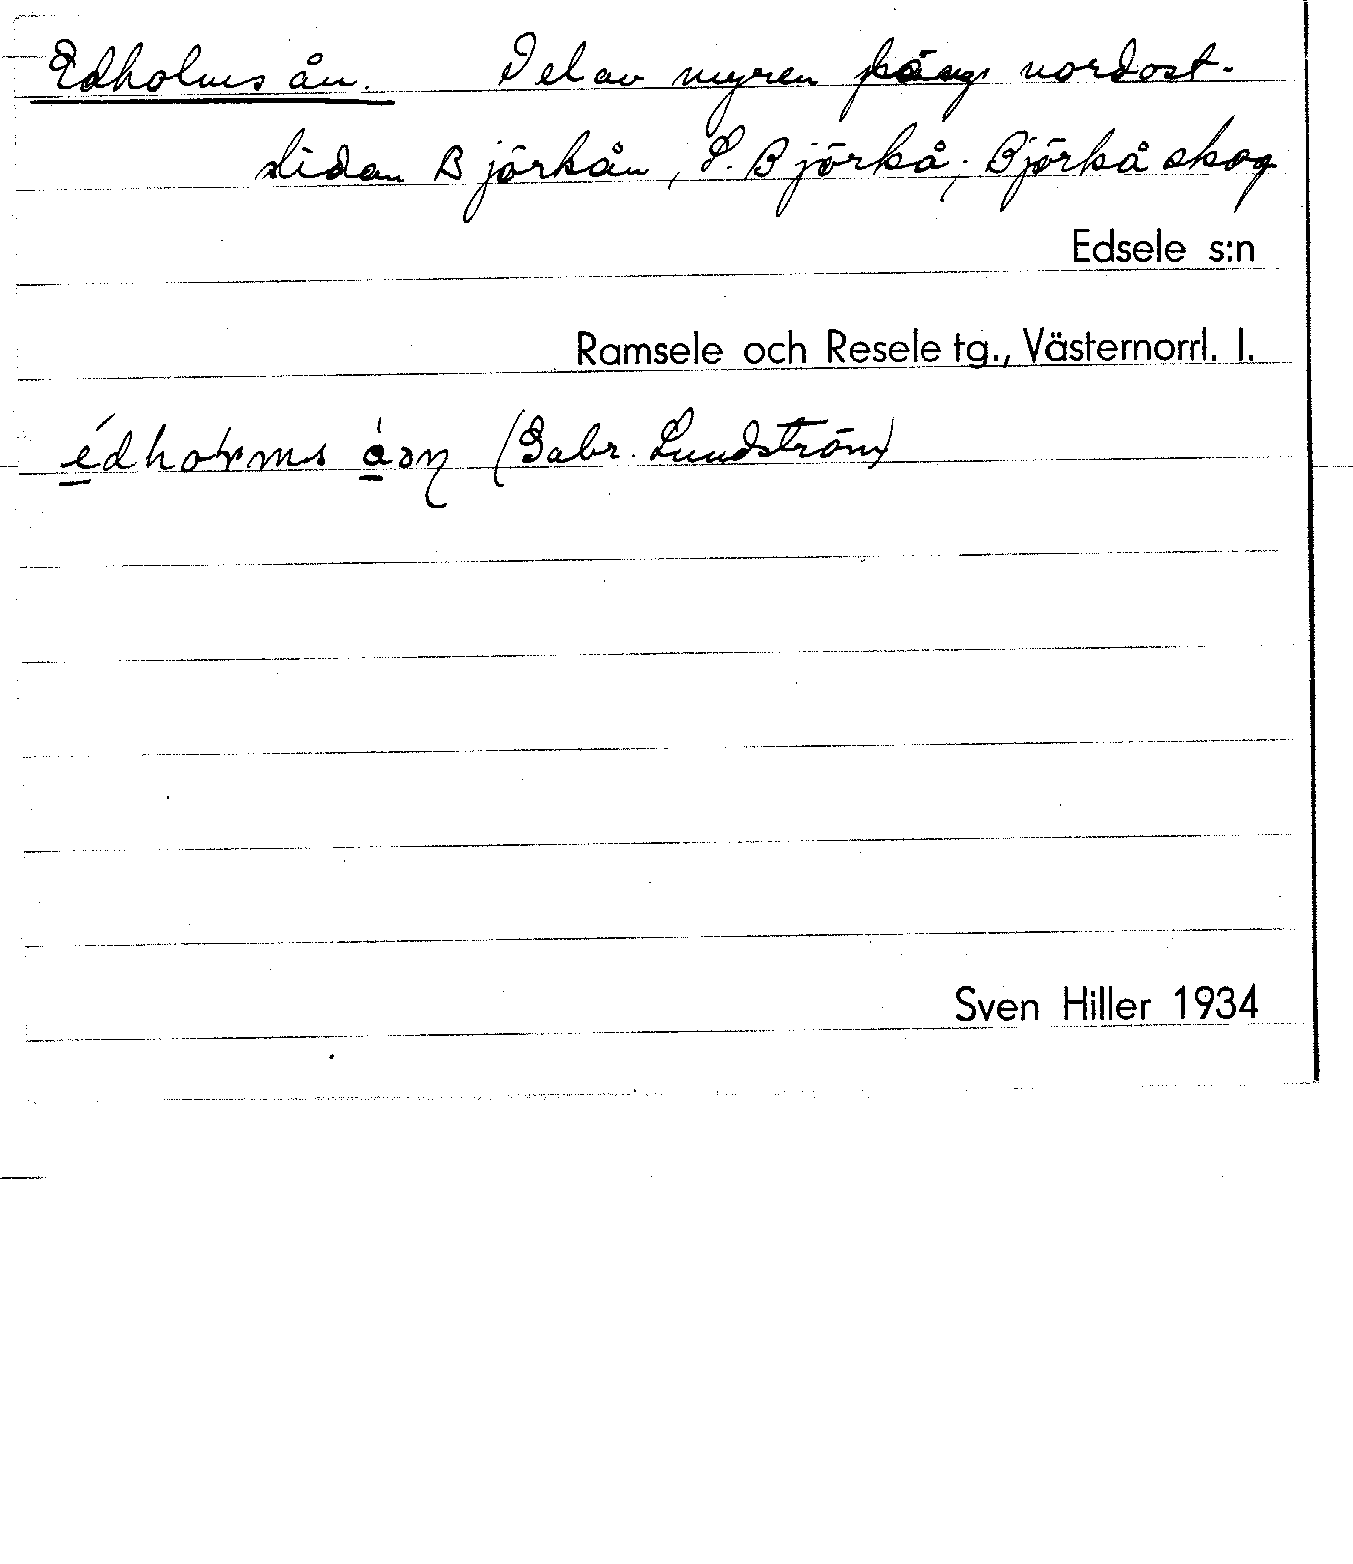 Edholms ån. Del av myren på nordost-
sidan Björkån, S. Björkå; Björkå skog
Edsele s:n
Ramsele och Resele tg., Västernorrl. l.
(Gabr. Lundström)
Sven Hiller 1934